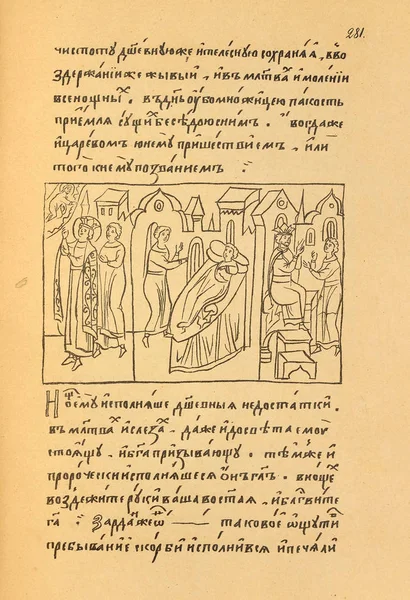 281.
чистоту дш҃евную же ителесную сохраняя, вво
здержанїи же жывый, ивъ млт҃ва имоленїи
всенощны. въдн҃ь оубо множицею па сость
прїемля сущи бесѣдою снимъ. вогда же
ицаревомъ кнему пришествїемъ, или
того кнему позванїемъ
исполняше дш҃евныя недостатки.
въ млт҃ва ислеза, даже идосвѣта ему
стоящу, ибг҃а призывающу. тѣмже и
пророчески исполняшеся онъ гл҃ъ. внощѐ
воздежите руки ваша востая, и блг҃вите
гд҃а
Зардан же таковое ѡщути
пребыванїе скорби исполнився ипечали